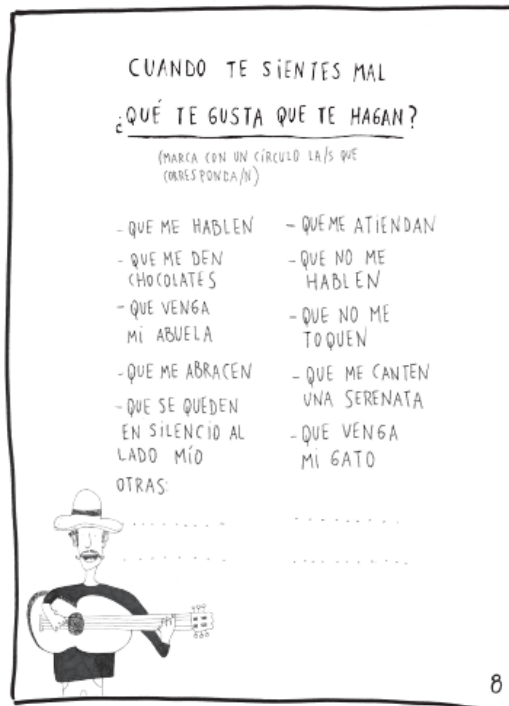 CUANDO TE SIENTES MAL
¿QUÉ TE GUSTA QUE TE HAGAN?
(MARCA CON UN CÍRCULO LA/S QUE
CORRESPONDA/N)
- QUE ME HABLEN
- QUE ME DEN
CHOCOLATES
- QUE VENGA
MI ABUELA
- QUE ME ABRACEN
- QUE SE QUEDEN
EN SILENCIO AL
LADO MÍO
- QUE ME ATIENDAN
- QUE NO ME
HABLEN
- QUE NO ME
TOQUEN
- QUE ME CANTEN
UNA SERENATA
- QUE VENGA
MI GATO
OTRAS:
8